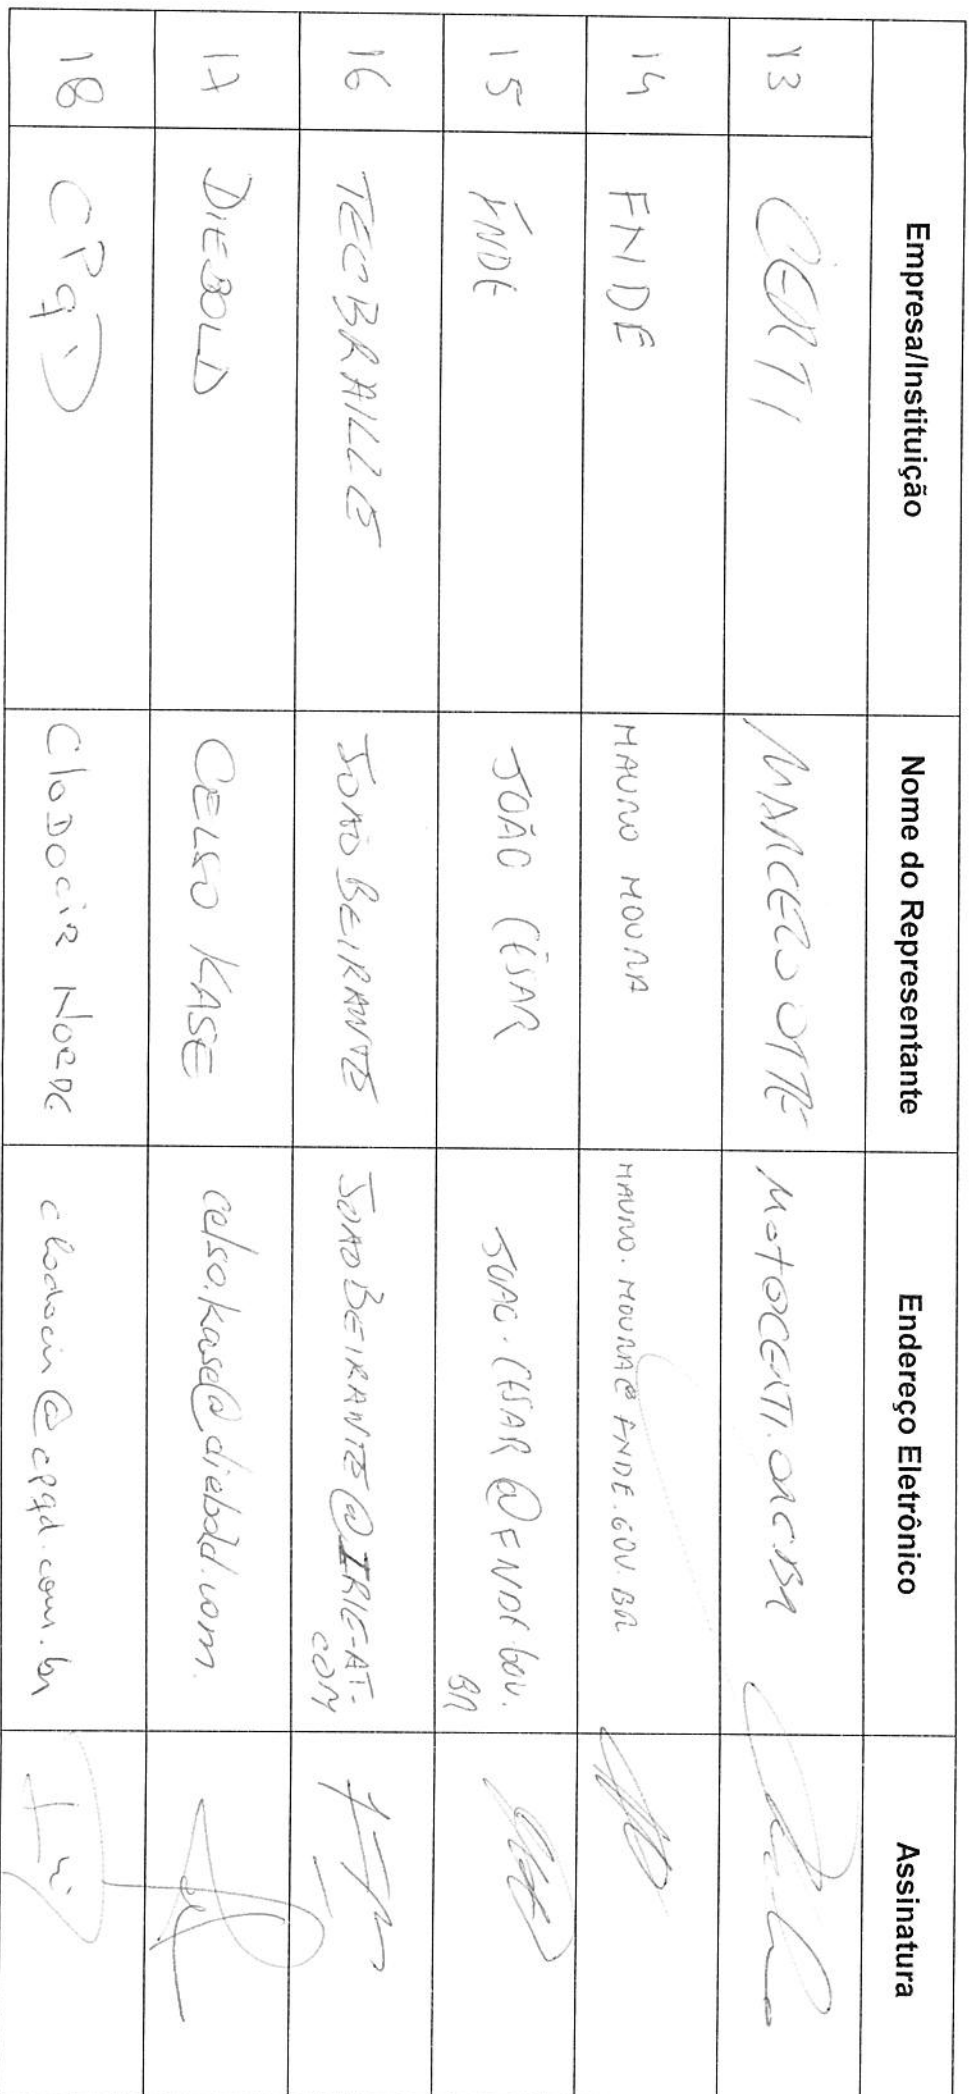 Empresa/Instituição Nome do Representante Endereço Eletrônico Assinatura
13 CERTI MARCELO OTTE MOTO@CERTI.ORG.BR
14 FNDE MAURO MOURA MAURO.MOURA@FNDE.GOV.BR
15 FNDE JOÃO CÉSAR JOAO.CESAR@FNDE.GOV.
BR
16 TECBRAILLE JOÃO BEIRANTE JOAOBEIRANTE@IRIE-AT.
COM
17 DIEBOLD CELSO KASE celso.kase@diebold.com
18 CPqD CloDociR clodocir@cpqd.com.br